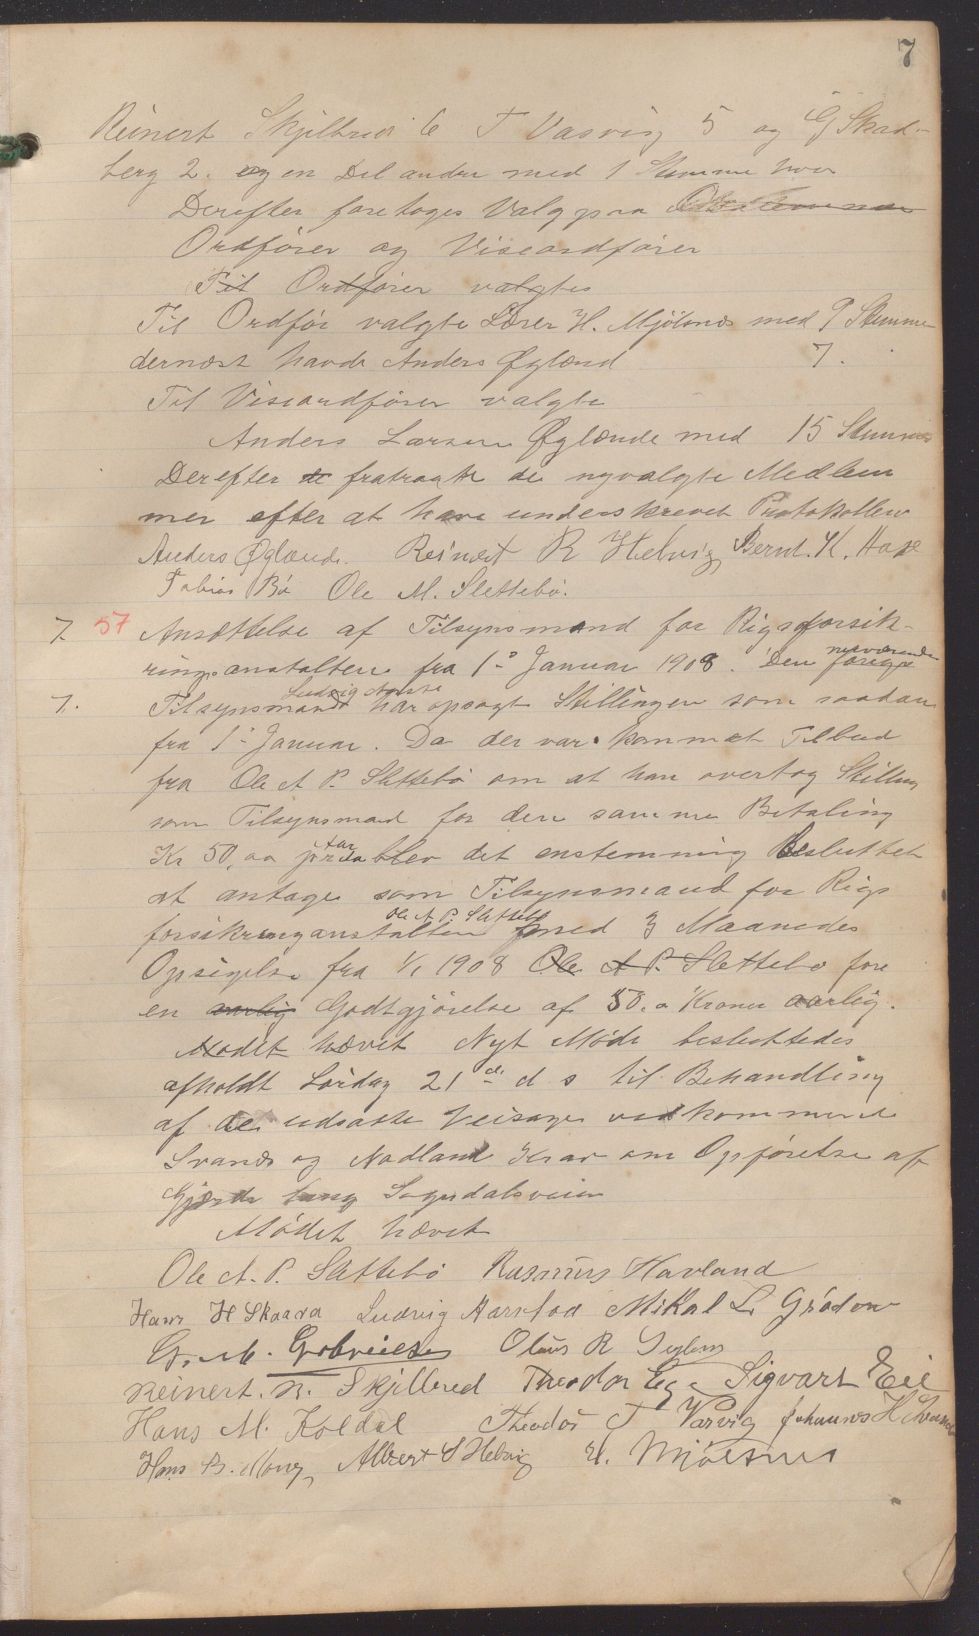 7
Reinert Skjilbred 6 T Vasvig 5 og G Skad-
berg 2. og en Del andre med 1 Stemme hver
Derefter foretoges Valg paa
Ordfører og Viseordfører
Til Ordfører valgtes
Til Ordfør valgte Lærer H. Mjölsnes med 9 Stemme
dernæst havde Anders Øglænd 7.
Til Viseordfører valgte
Anders Larsen Øglænde med 15 Stemmer
Derefter de fratraatte de nyvalgte Medlem
mer efter at have underskrevet Protokollen
Anders Øglænde. Reinert R Helvig Bernt. K. Haže
Tobias Bö Ole M. Slettebö.
7. 57 Ansættelse af Tilsynsmand for Rigsforsik-
ringsanstalten fra 1ᵉ Januar 1908. Den nuværende
7. Tilsynsmand Ludvig Aarstad har opsagt Stillingen som saadan
fra 1ᵉ Januar. Da der var kommet Tilbud
fra Ole A P. Slettebö om at han overtog Stilling
som Tilsynsmand for den samme Betaling
Kr 50,00 pr aar blev det enstemmig Besluttet
at antage som Tilsynsmand for Rigs
forsikringanstalten Ole A P. Slettebö med 3 Maanedes
Opsigelse fra 1/1 1908 Ole A P. Slettebö fore
en aarlig Godtgjörelse af 50.0 Kroner aarlig.
Mödet hævet Nyt Møde besluttedes
afholdt Lördag 21de d s til Behandling
af de udsatte Veisager vedkommende
Svanes og Nodland Krav om Opförelse af
Gjærde lang Sogndalsveien
Mödet hævet
Ole A. P. Slettebö Rasmus Havland
Hans H Skaara Ludvig Aarstad Mikal L. Grödem
G. M. Gabrielsen Olaus R
Reinert. R. Skjilbred Theodor Ege Sigvart Eie
Hans M. Koldal Theodor T Vasvig Johannes H
Hans B. Mong Albert S Helvig H. Mjölsnes